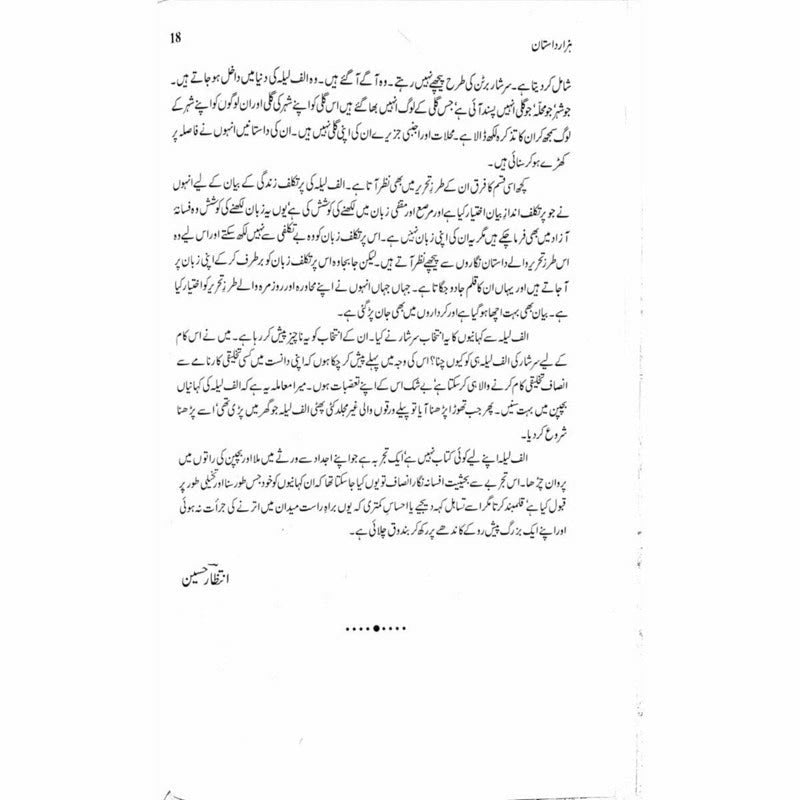 ہزار داستان
18
شامل کر دیتا ہے۔ سرشار برٹن کی طرح پیچھے نہیں رہتے۔ وہ آگے آ گئے ہیں۔ وہ الف لیلہ کی دنیا میں داخل ہو جاتے ہیں۔
جو شہر، جو محلہ، جو گلی انہیں پسند آئی ہے، جس گلی کے لوگ انہیں بھا گئے ہیں اس گلی کو اپنے شہر کی گلی اور ان لوگوں کو اپنے شہر کے
لوگ سمجھ کر ان کا تذکرہ لکھ ڈالا ہے۔ محلات اور اجنبی جزیرے ان کی اپنی گلی نہیں ہیں۔ ان کی داستانیں انہوں نے فاصلہ پر
کھڑے ہو کر سنائی ہیں۔
کچھ اسی قسم کا فرق ان کے طرز تحریر میں بھی نظر آتا ہے۔ الف لیلہ کی پر تکلف زندگی کے بیان کے لیے انہوں
نے جو پر تکلف انداز بیان اختیار کیا ہے اور مرصع اور مقفی زبان میں لکھنے کی کوشش کی ہے، یوں یہ زبان لکھنے کی کوشش وہ فسانۂ
آزاد میں بھی فرما چکے ہیں مگر یہ ان کی اپنی زبان نہیں ہے۔ اس پر تکلف زبان کو وہ بے تکلفی سے نہیں لکھ سکتے اور اس لیے وہ
اس طرز تحریر والے داستان نگاروں سے پیچھے نظر آتے ہیں۔ لیکن جابجا وہ اس پر تکلف زبان کو برطرف کر کے اپنی زبان پر
آ جاتے ہیں اور یہاں ان کا قلم جادو جگاتا ہے۔ جہاں جہاں انہوں نے اپنے محاورہ اور روزمرہ والے طرز تحریر کو اختیار کیا
ہے۔ بیان بھی بہت اچھا ہو گیا ہے اور کرداروں میں بھی جان پڑ گئی ہے۔
الف لیلہ سے کہانیوں کا یہ انتخاب سرشار نے کیا۔ ان کے انتخاب کو یہ ناچیز پیش کر رہا ہے۔ میں نے اس کام
کے لیے سرشار کی الف لیلہ ہی کو کیوں چنا؟ اس کی وجہ میں پہلے پیش کر چکا ہوں کہ اپنی دانست میں کسی تخلیقی کارنامے سے
انصاف تخلیقی کام کرنے والا ہی کر سکتا ہے، بے شک اس کے اپنے تعصبات ہوں۔ میرا معاملہ یہ ہے کہ الف لیلہ کی کہانیاں
بچپن میں بہت سنیں۔ پھر جب تھوڑا پڑھنا آیا تو پیلے ورقوں والی غیر مجلد کٹی پھٹی الف لیلہ جو گھر میں پڑی تھی، اسے پڑھنا
شروع کر دیا۔
الف لیلہ اپنے لیے کوئی کتاب نہیں ہے، ایک تجربہ ہے جو اپنے اجداد سے ورثے میں ملا اور بچپن کی راتوں میں
پروان چڑھا۔ اس تجربے سے بحیثیت افسانہ نگار انصاف تو یوں کیا جا سکتا تھا کہ ان کہانیوں کو خود جس طور سنا اور تخیلی طور پر
قبول کیا ہے، قلمبند کرتا مگر اسے تساہل کہہ دیجیے یا احساس کمتری کہ یوں براہ راست میدان میں اترنے کی جرأت نہ ہوئی
اور اپنے ایک بزرگ پیش رو کے کاندھے پر رکھ کر بندوق چلائی ہے۔
انتظار حسین